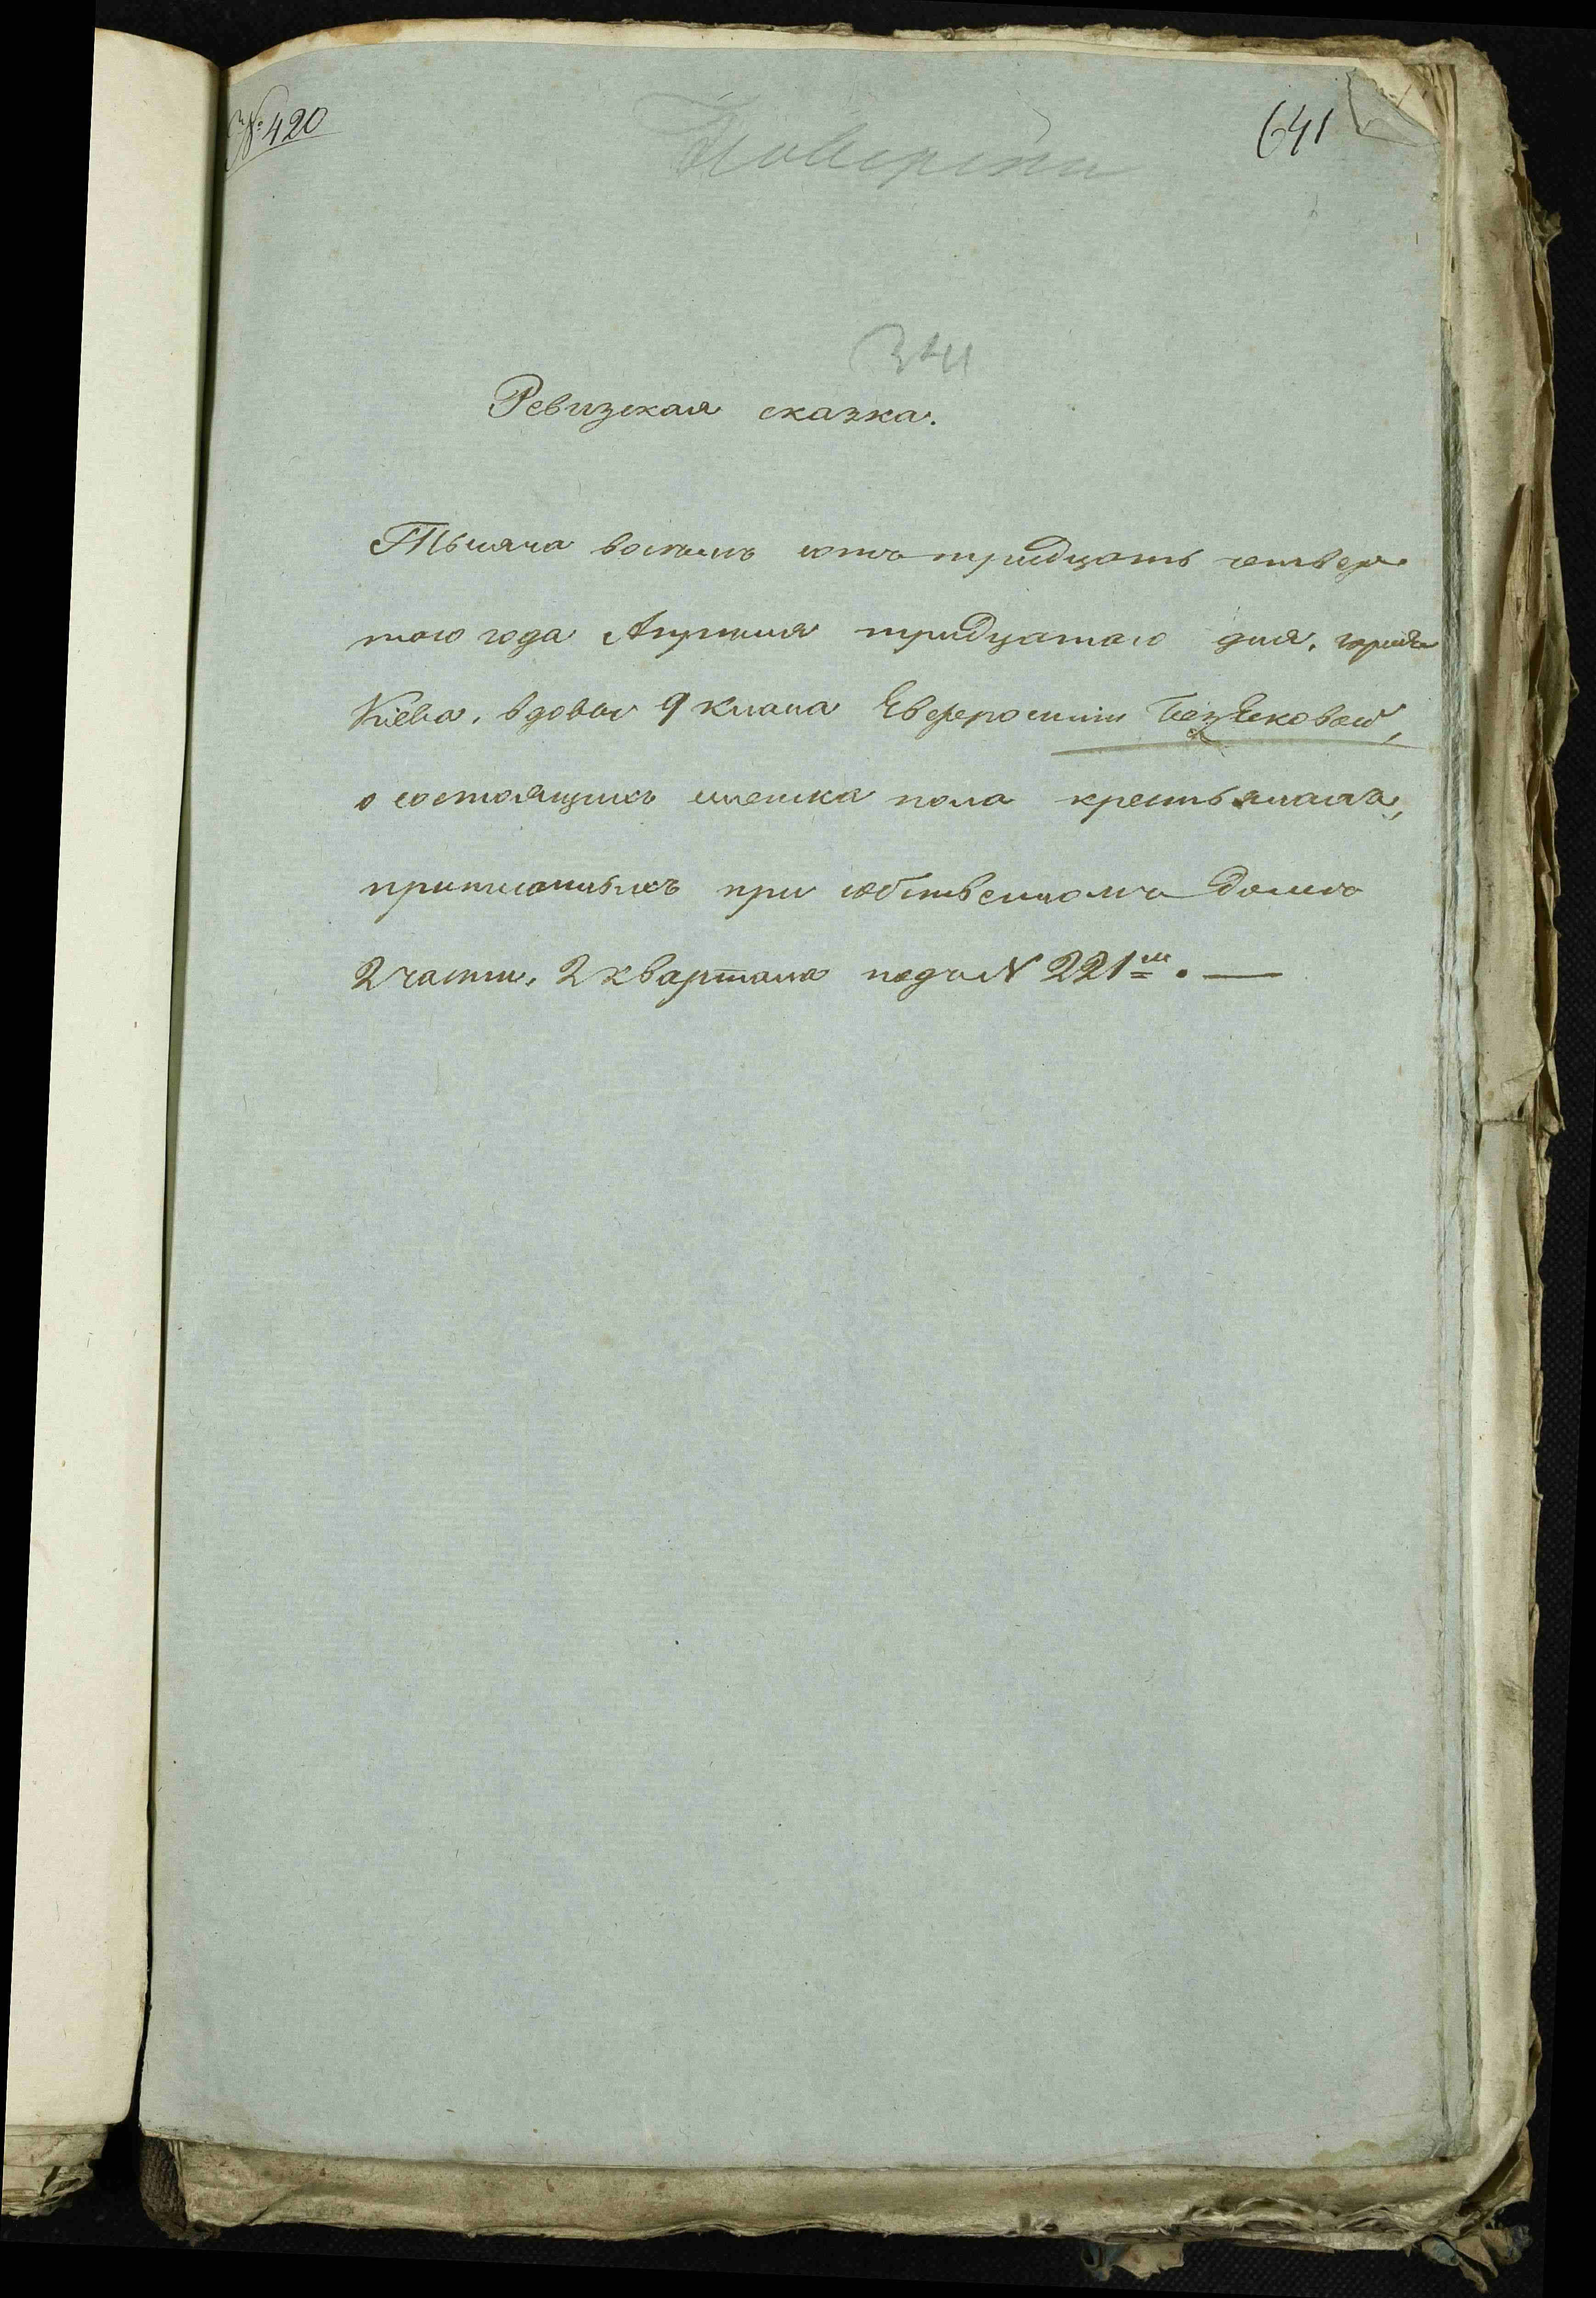 № 420
641
341
Ревизская сказка.
Тысяча восемь сотъ тридцать четвер
таго года Апреля тридцатаго дня. города
Кіева, вдовы 9 класа Евфросиніи
о состоящихъ мужеска пола крестьянахъ,
приписныхъ при собственномъ домѣ
2 части, 2 квартала подъ N 221 м.